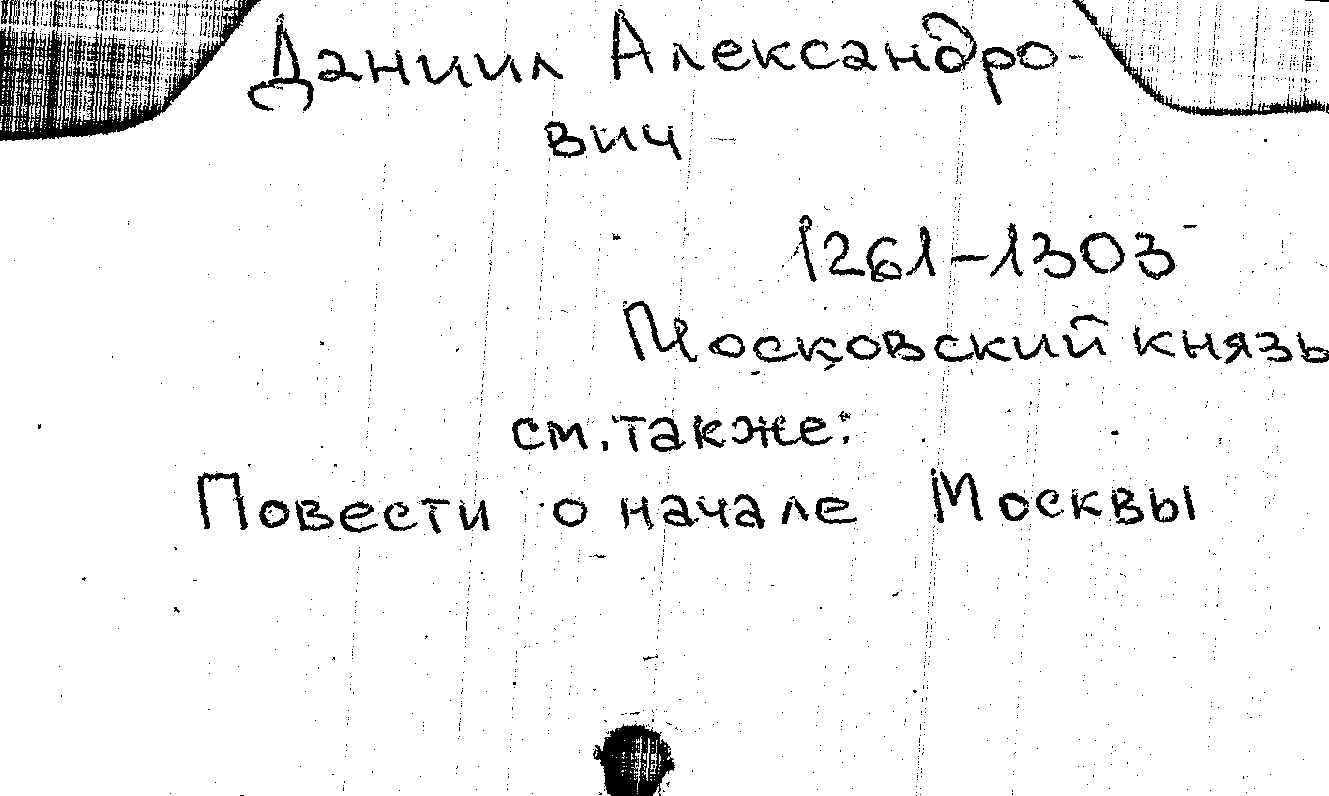 Даниил Александро-
вич
1261-1303
Московский князь
см. также:
Повести о начале Москвы